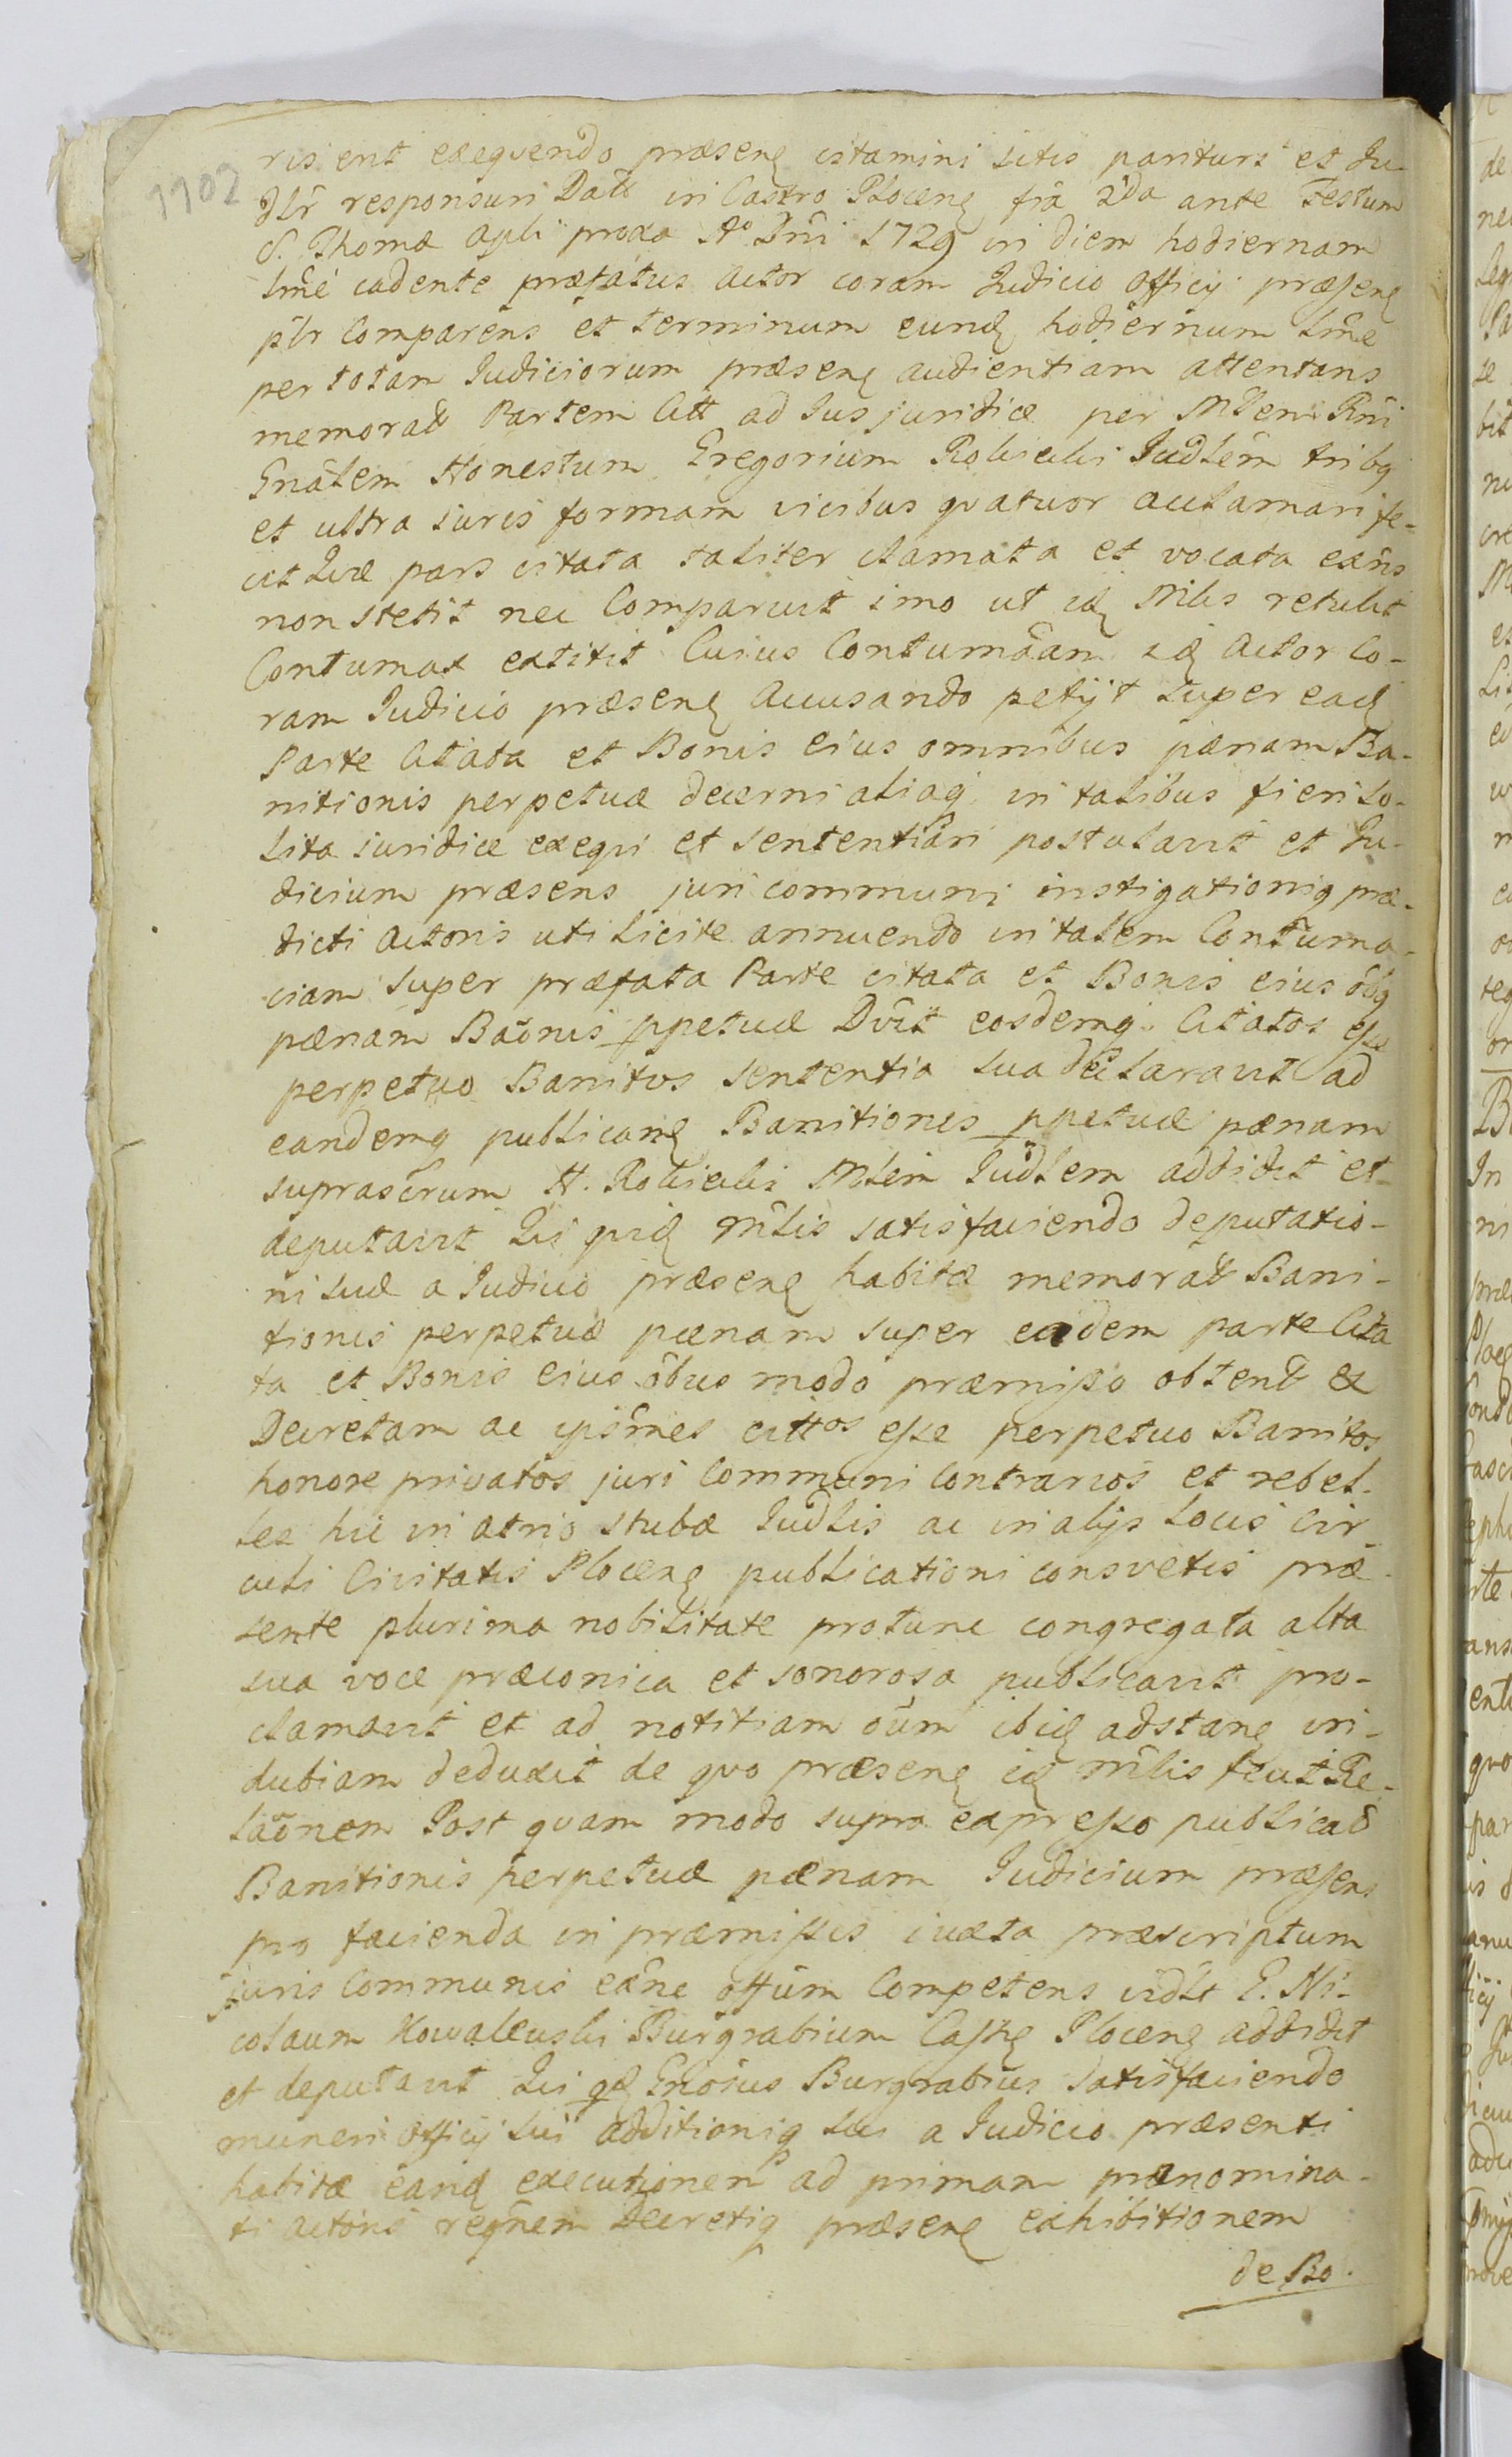 1102
ris ent exequendo præsenꝫ citamini sitis parituri et Ju-
dlr responsuri Datt in Castro Plocenꝫ fia 2da ante Festum
S. Thomæ Apli proxa Aº Dni 1729 in diem hodiernam
lme cadente præfatus Actor coram Judicio Officij præsenꝫ
plr Comparens et terminum eundꝫ hodiernum lme
per totam Judiciorum præsenꝫ audientiam attentans
memorat Partem Citt ad Jus juridice per Mlem Rni
Gnalem Honestum Gregorium Robicki Judlem tribq
et ultra juris formam vicibus quatuor acclamari fe-
cit Quæ pars citata taliter clamata et vocata eans
non stetit nec Comparuit imo ut idꝫ Mlis retulit
Contumax extitit Cuius Contumaam idꝫ Actor Co-
ram Judicio præsenꝫ Accusando petijt super eadꝫ
Parte Citata et Bonis eius omnibus pænam Ba-
nitionis perpetuæ decerni aliaq in talibus fieri so-
lita juridice exequi et sententiari postulavit et Ju-
dicium præsens juri communi instigationiq præ-
dicti Actoris uti licite annuendo in talem Contuma-
ciam super præfata Parte citata et Bonis eius oibq
pænam Baonis ppetuæ Dvit eosdemq Citatos esse
perpetuo Banitos sententia sua declaravit ad
eandemq publicanꝫ Banitionis ppetuæ pænam
suprascrum H. Robicki Mlem Judlem addidit et
deputavit Qui quidꝫ Mlis satisfaciendo deputatio-
ni suæ a Judicio præsenꝫ habitæ memorat Bani-
tionis perpetuæ pænam super eadem parte Cita
ta et Bonis eius oibus modo præmisso obtent &
Decretam ac ipsmes cittos esse perpetuo Banitos
honore privatos juri Communi Contrarios et rebel-
les hic in atrio stubæ Judlis ac in alijs locis Cir
culi Civitatis Plocenꝫ publicationi consvetis præ-
sente plurima nobilitate protunc congregata alta
sua voce præconica et sonorosa publicavit pro-
clamavit et ad notitiam oium ibidꝫ adstanꝫ in-
dubiam deduxit de quo præsenꝫ idꝫ Mlis fecit Re-
laonem Post quam modo supra expresso publicat
Banitionis perpetuæ pænam Judicium præsens
pro facienda in præmissis iuxta præscriptum
juris Communis exne offium Competens vidlt G. Ni-
colaum Kowalewski Burgrabium Casstꝫ Plocenꝫ addidit
et deputavit Qui qdꝫ Gnosus Burgrabius satisfaciendo
muneri Officij sui additioniq sui a Judicio præsenti
habitæ eandꝫ executionem ad primam prænomina-
ti Actoris reqnem Decretiq præsenꝫ exhibitionem
de Bo.